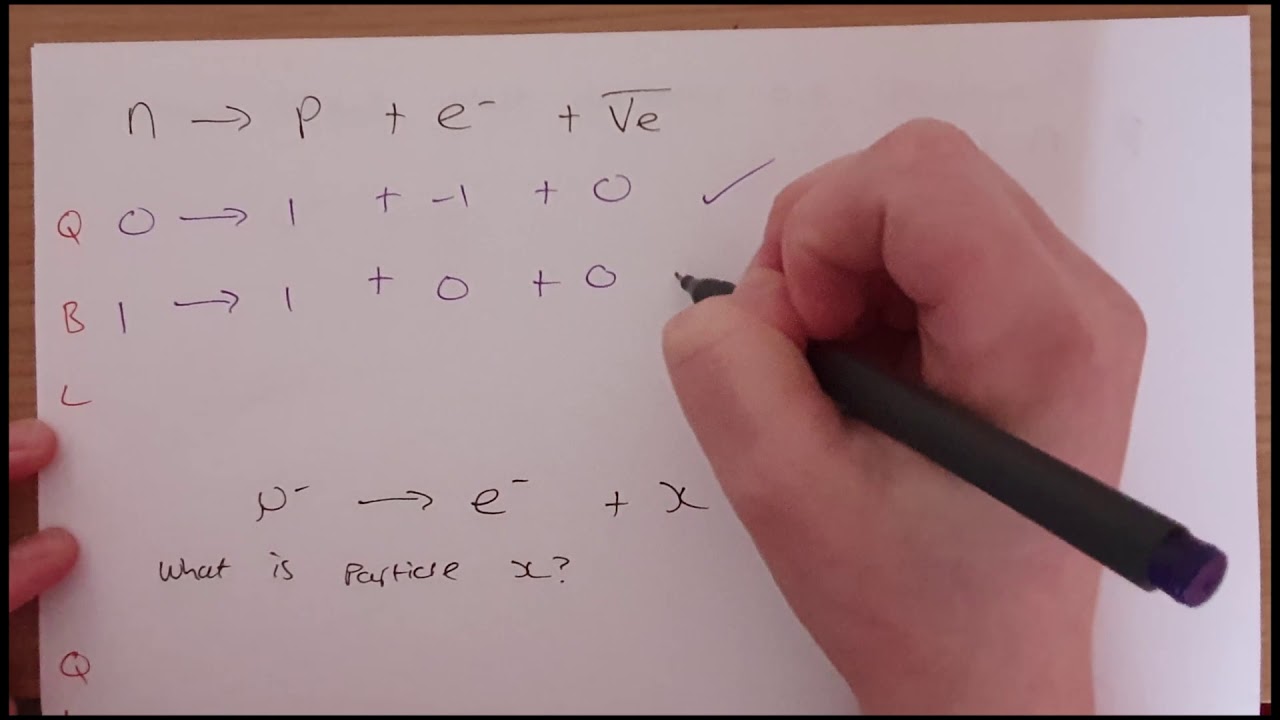 n → p + e⁻ + V̅e
Q 0 → 1 + -1 + 0 ✓
B 1 → 1 + 0 + 0
L
μ⁻ → e⁻ + x
What is Particle x?
Q